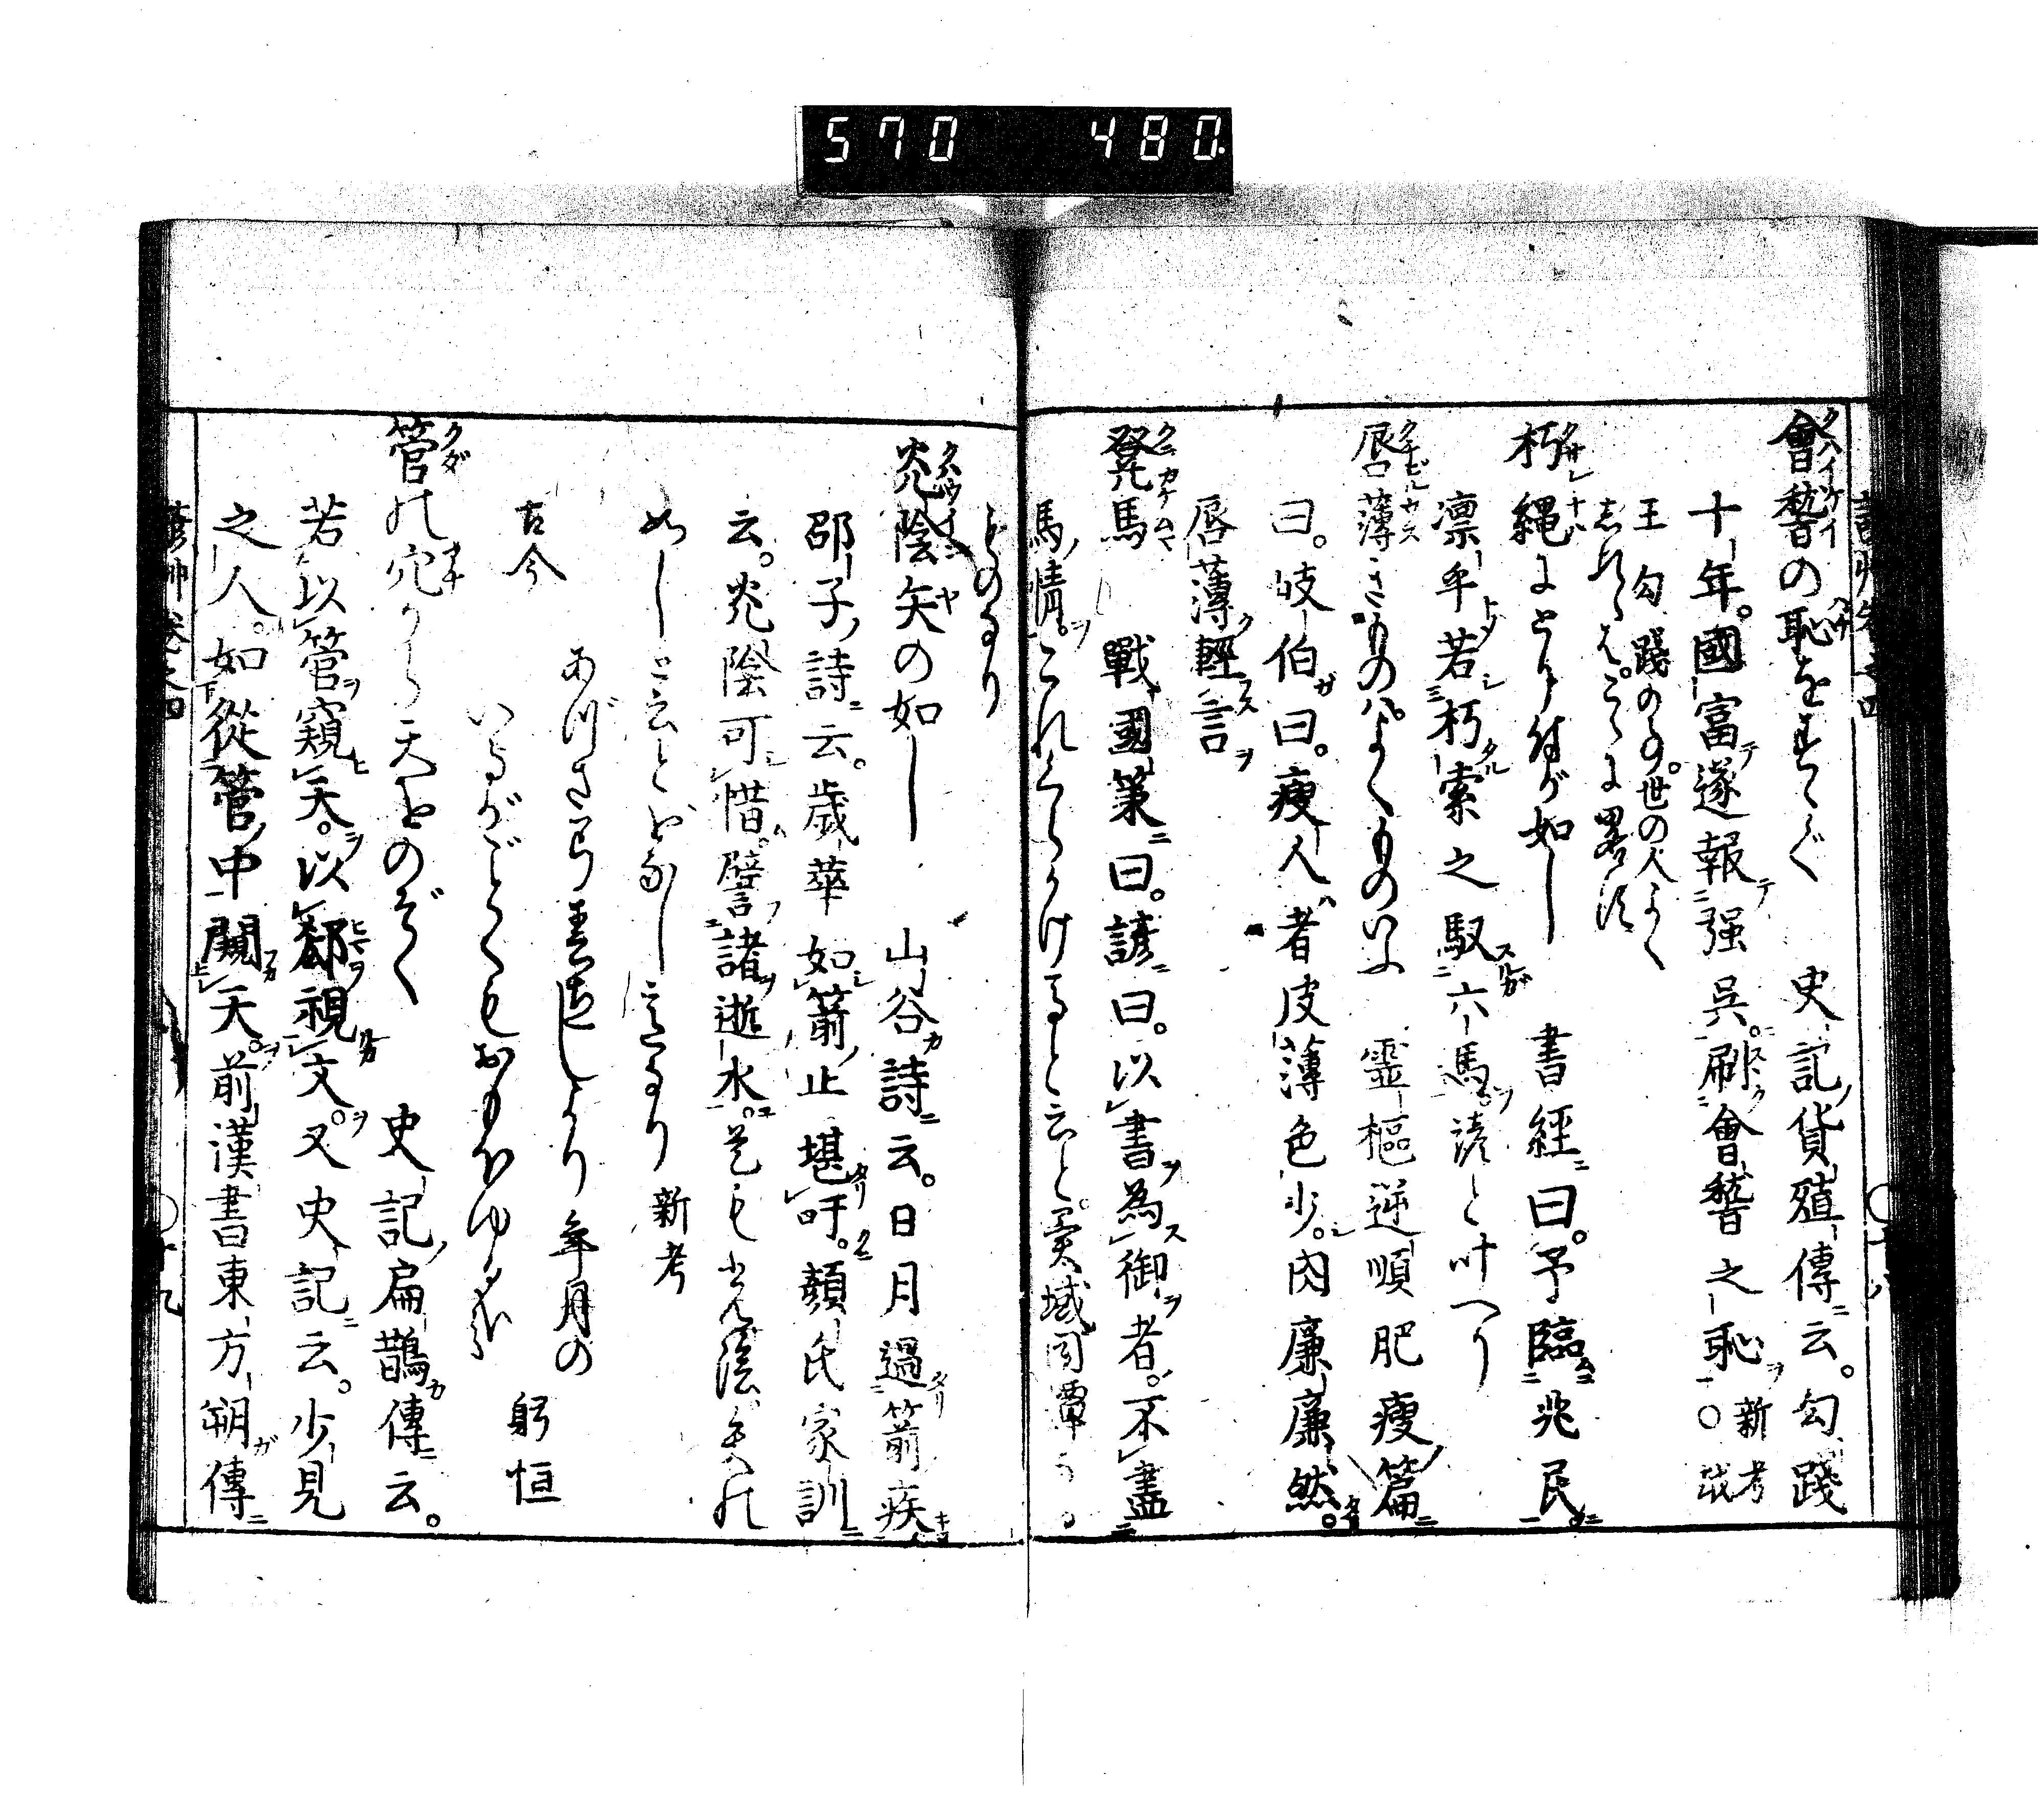 570 480
會稽の恥をすゝぐ 史記貨殖傳云。勾踐
十年。國富遂報强呉。刷會稽之恥 新考 〇 越
王勾踐の事。世の人よく
しれゝば。こゝに畧す
朽縄にとり付が如し 書經曰。予臨兆民
凛乎若朽索之馭六馬 諺と叶へり
唇薄きものハ。よくものいふ 靈樞逆順肥瘦篇
曰。岐伯曰。瘦人者皮薄色少。肉廉廉然。
唇薄輕言
凳馬 戰國策曰。諺曰。以書為御者。不盡
馬情。これくらかけ
ものなり
光陰矢の如し 山谷詩云。日月過箭疾
邵子詩云。歲華如箭止堪吁。顏氏家訓
云。光陰可惜。譬諸逝水。是も光陰矢の
如しと云とおなし意なり 新考
古今 あづさ弓春たちしより年月の
いるがごとくもおもほゆるかな 躬恒
管の穴から天をのぞく 史記扁鵲傳云。
若以管窺天。以郄視文。又史記云。少見
之人。如從管中闚天。前漢書東方朔傳